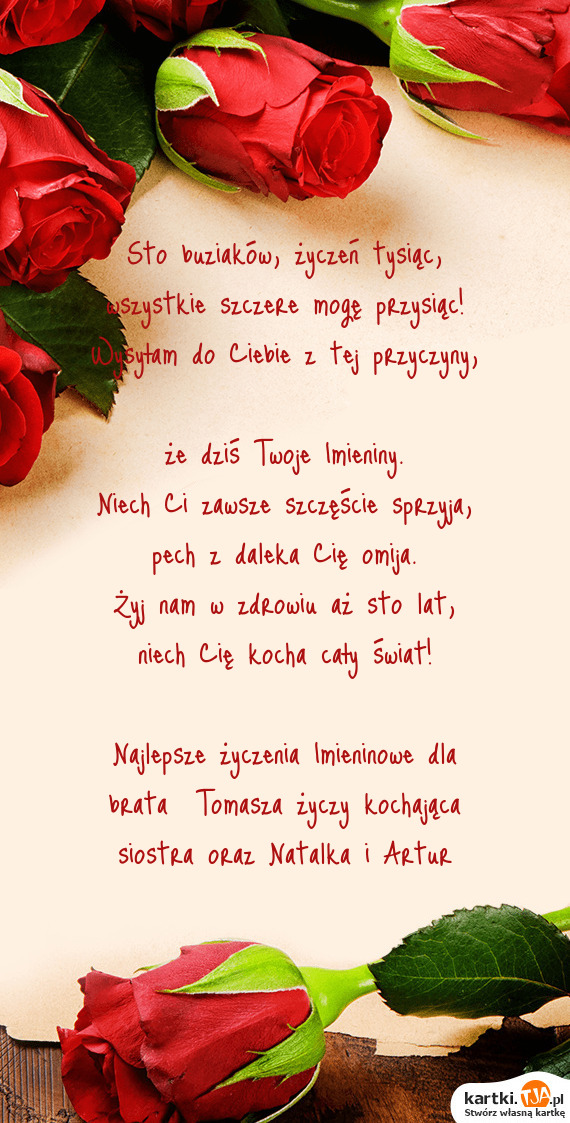 Sto buziaków, życzeń tysiąc,
wszystkie szczere mogę przysiąc!
Wysyłam do Ciebie z tej przyczyny,
że dziś Twoje Imieniny.
Niech Ci zawsze szczęście sprzyja,
pech z daleka Cię omija.
Żyj nam w zdrowiu aż sto lat,
niech Cię kocha cały świat!
Najlepsze życzenia Imieninowe dla
brata Tomasza życzy kochająca
siostra oraz Natalka i Artur
kartki.TJA.pl
Stwórz własną kartkę